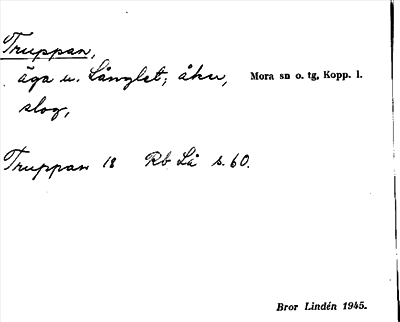 Truppan,
äga u. Långlet; åker, Mora sn o. tg, Kopp. l.
skog,
Truppan 18 Rb Lå s. 60.
Bror Lindén 1945.